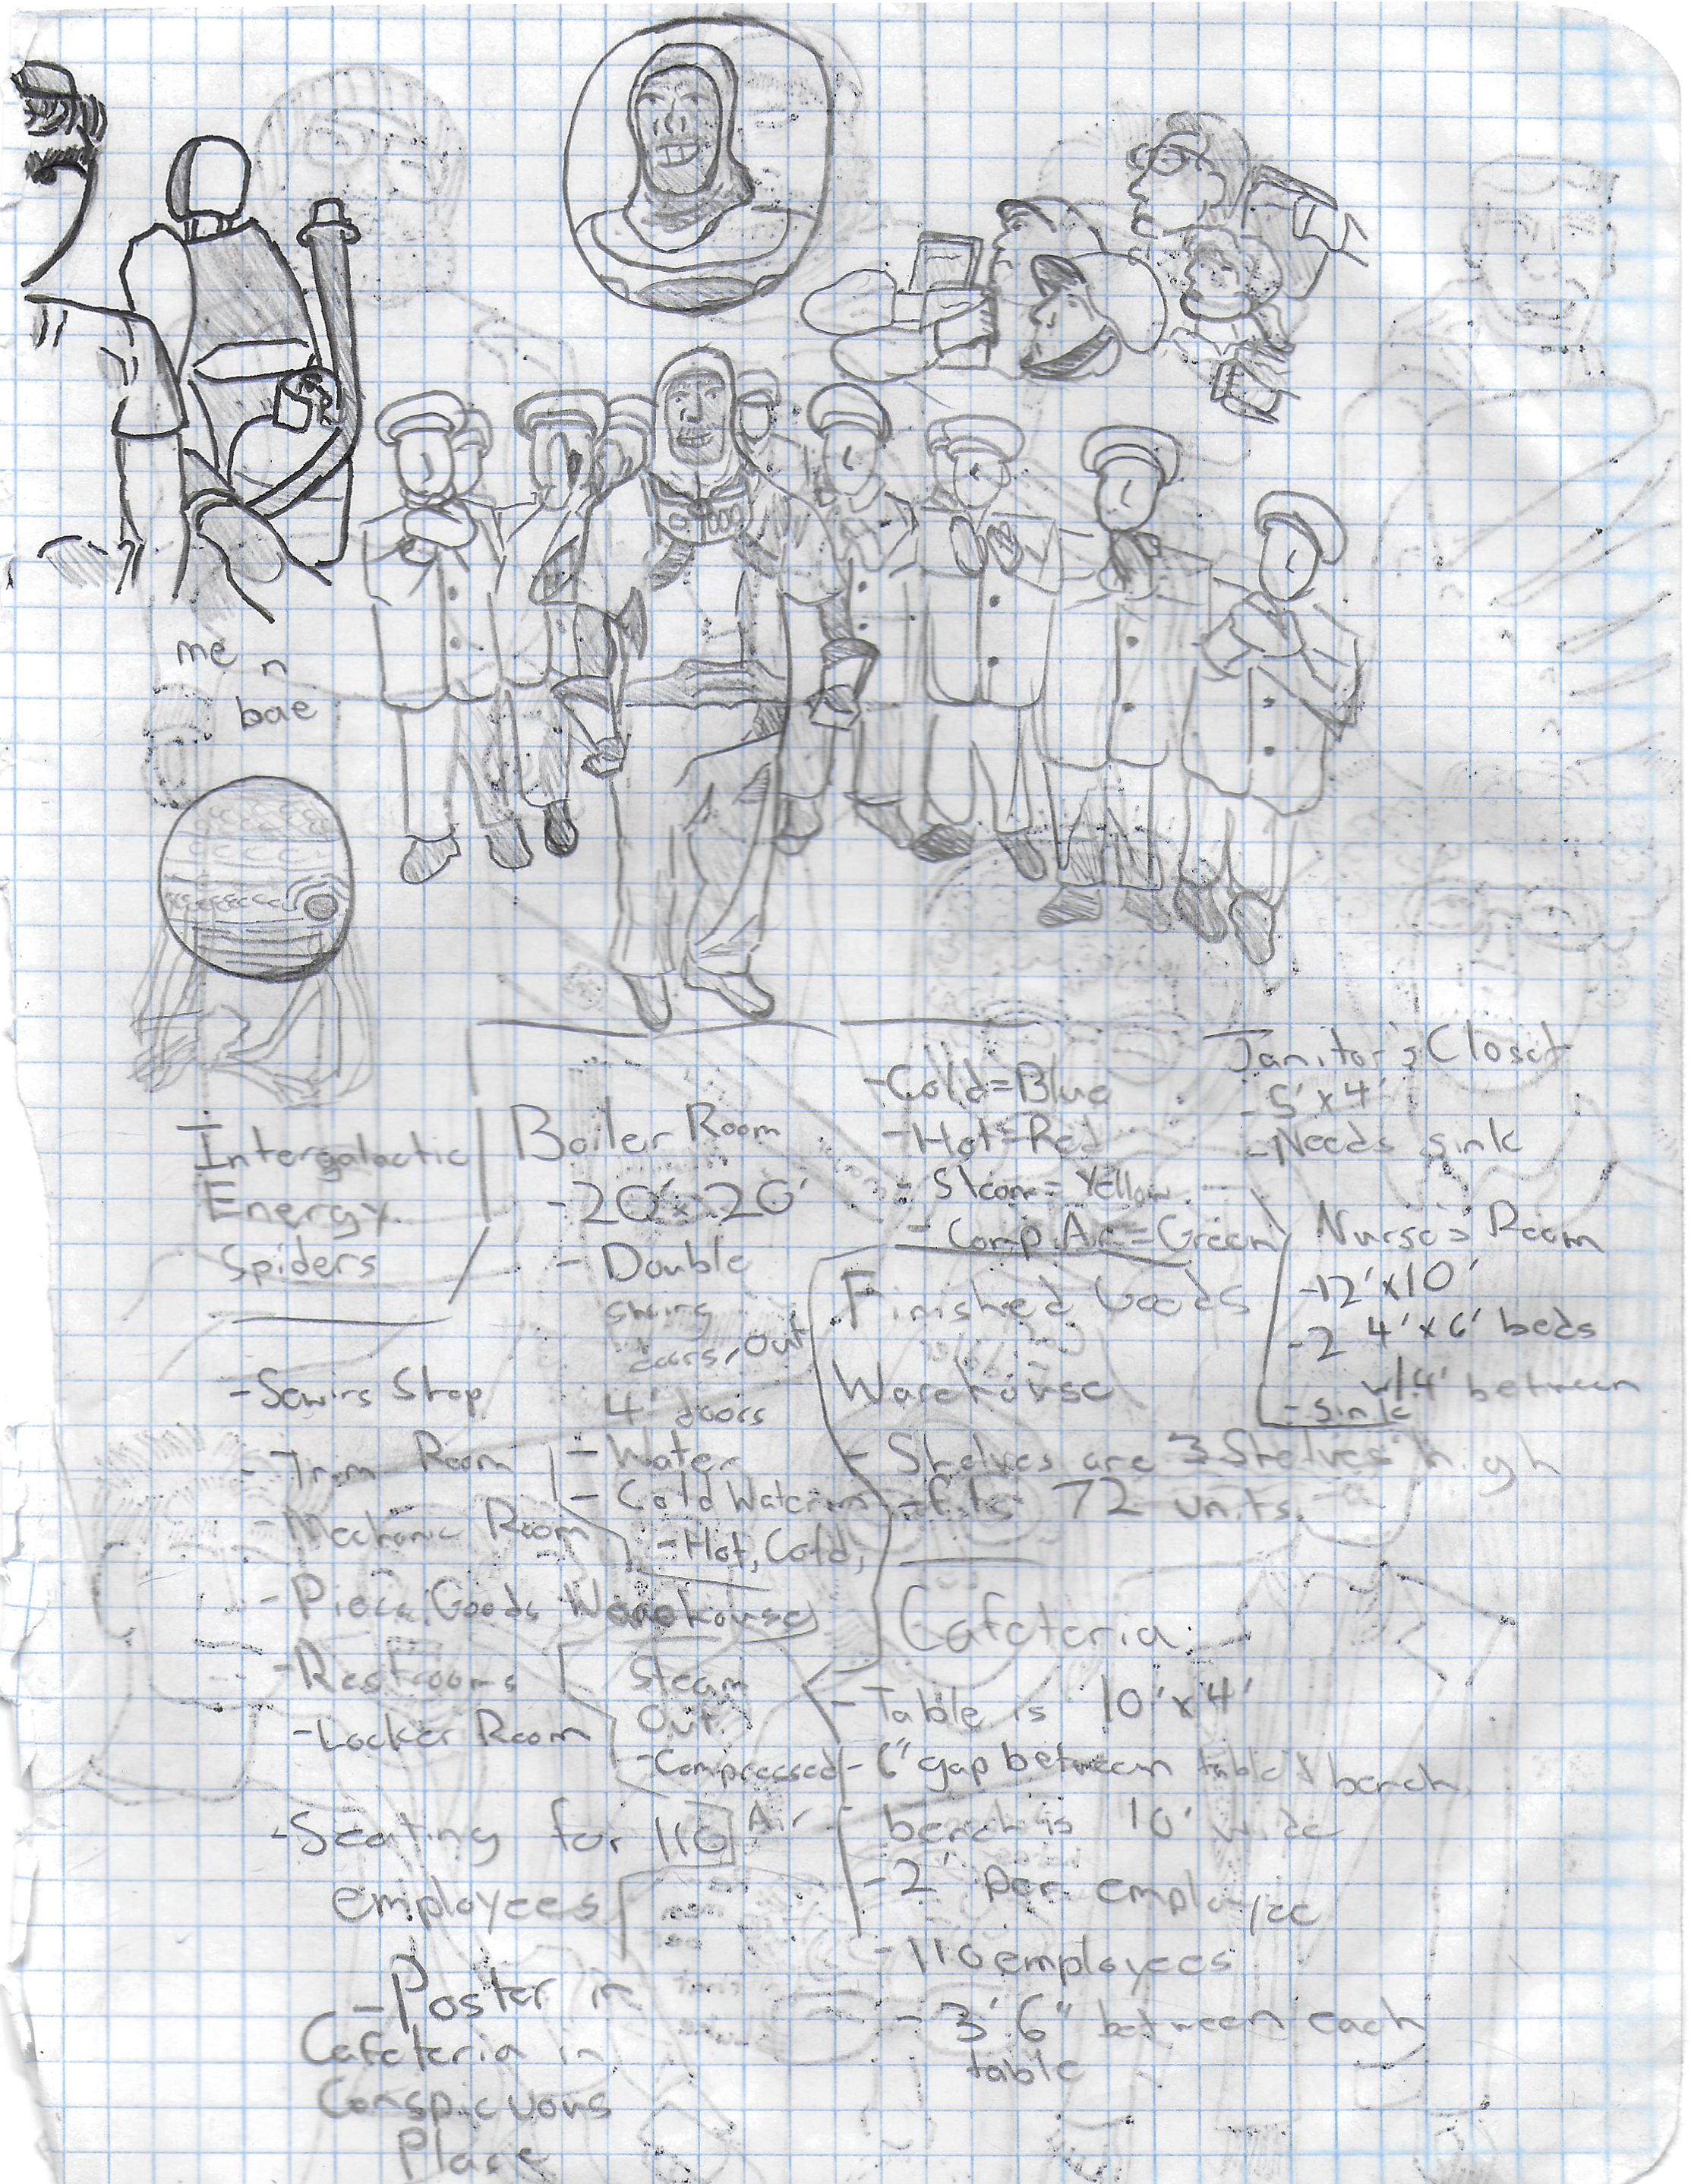 me n
bae
Intergalactic
Energy
Spiders
Boiler Room
- 20' x 20'
- Double
swing
doors, out
4' doors
- Water
- Cold Water in
- Hot, Cold,
Steam
Out
- Compressed
Air
- Cold = Blue
- Hot = Red
- Steam = Yellow
- Comp. Air = Green
Janitor's Closet
- 5' x 4'
- Needs sink
Nurse's Room
- 12' x 10'
- 2 4' x 6' beds
w/ 4' between
- sink
Finished Goods
Warehouse
- Shelves are 3 Shelves high
- fits 72 units
- Trim Room
- Mechanic Room
- Piece Goods Warehouse
- Restrooms
- Locker Room
- Seating for 110
employees
- Poster in
Cafeteria in
Conspicuous
Place
Cafeteria
- Table is 10' x 4'
- 6" gap between table & bench
- bench is 10' wide
- 2' per employee
- 110 employees
- 3' 6" between each
table